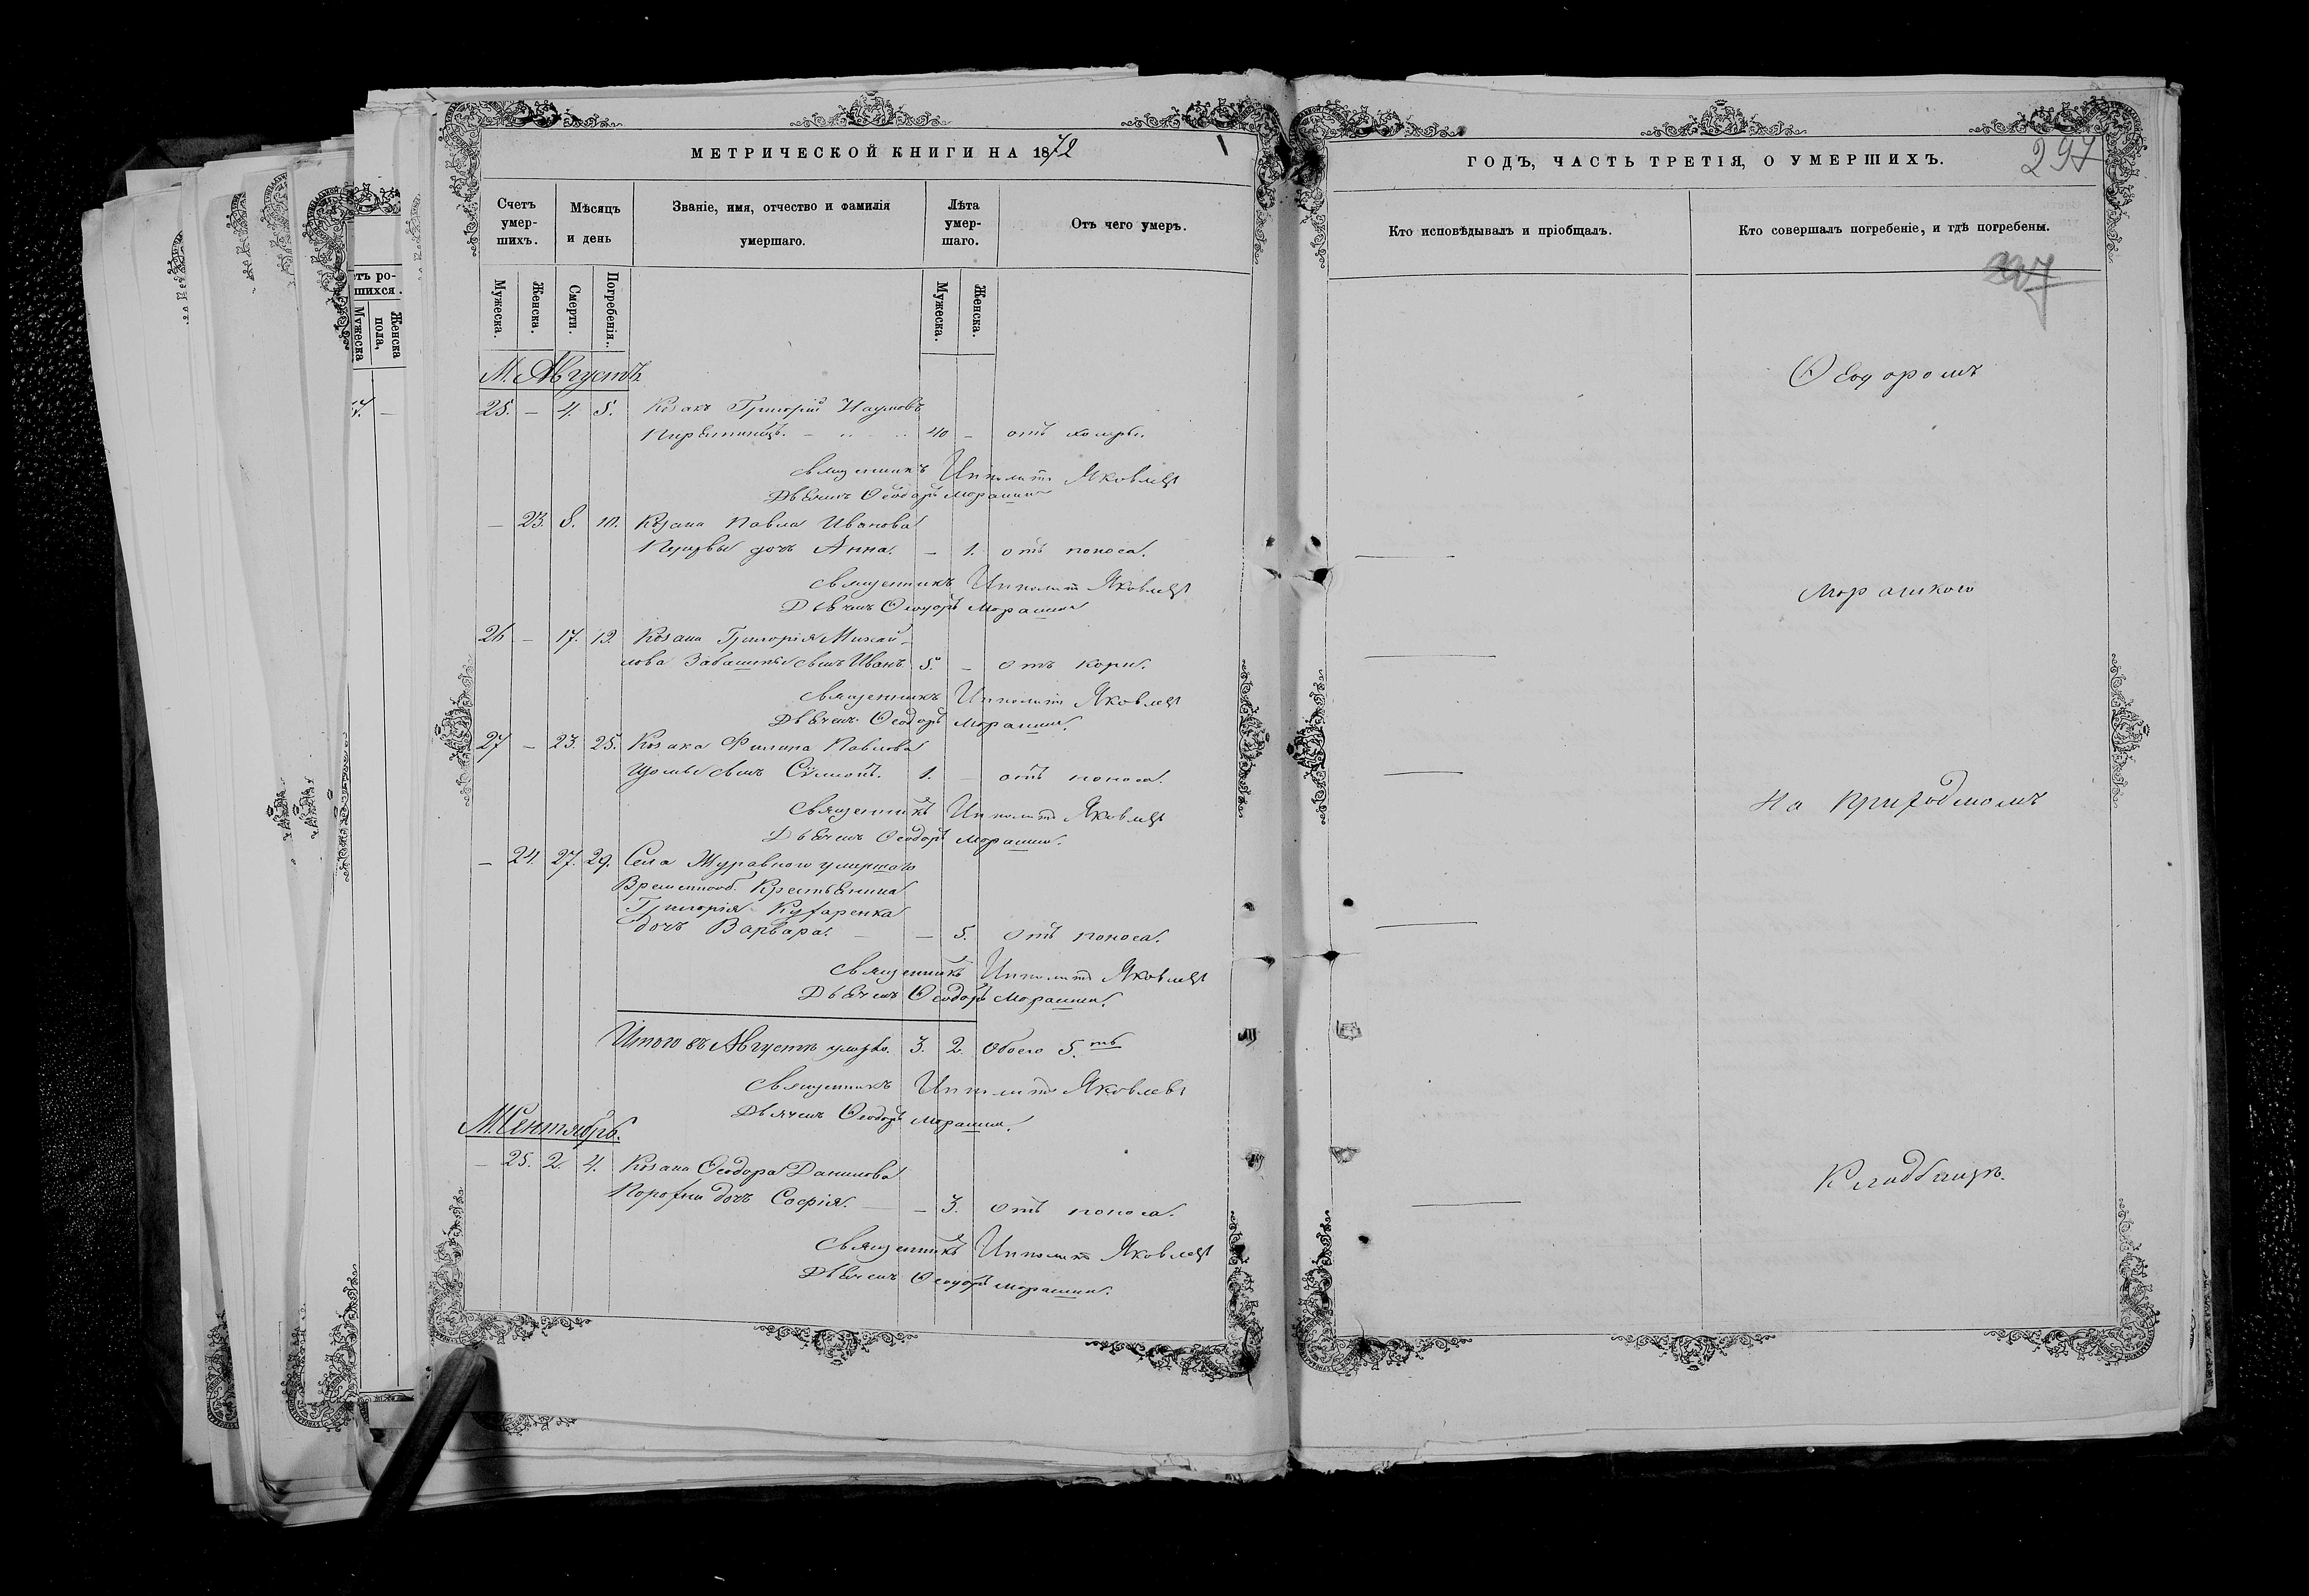 МЕТРИЧЕСКОЙ КНИГИ НА 1872
Счетъ умер-шихъ.
Мѣсяцъ и день
Званіе, имя, отчество и фамилія умершаго.
Лѣта умер-шаго.
Отъ чего умеръ.
Мужеска.
Женска.
Смерти.
Погребенія.
Мужеска.
Женска.
М. Августъ
25. — 4. 5. Козакъ Григорій Наумовъ
40 — отъ холеры.
Священникъ Ипполитъ Яковлевъ
Дьячекъ Ѳеодоръ
— 23. 8. 10. Козака Павла Иванова
дочь Анна. — 1. отъ поноса.
Священникъ Ипполитъ Яковлевъ
Дьячекъ Ѳеодоръ
26 — 17. 19. Козака Григорія Михай-
лова сынъ Иванъ 5. — отъ кори.
Священникъ Ипполитъ Яковлевъ
Дьячекъ Ѳеодоръ
27 — 23. 25. Козака Филипа Павлова
сынъ 1. — отъ поноса.
Священникъ Ипполитъ Яковлевъ
Дьячекъ Ѳеодоръ
— 24. 27. 29. Села Журавного
Временнооб. Крестьянина
Григорія
дочь Варвара. — — 5. отъ поноса.
Священникъ Ипполитъ Яковлевъ
Дьячекъ Ѳеодоръ
Итого въ Августѣ 3. 2. Обоего 5.
Священникъ Ипполитъ Яковлевъ
Дьячекъ Ѳеодоръ
М. Сентябрь.
— 25. 2. 4. Козака Ѳеодора Данилова
дочь Софія. — — 3. отъ поноса.
Священникъ Ипполитъ Яковлевъ
Дьячекъ Ѳеодоръ
ГОДЪ, ЧАСТЬ ТРЕТІЯ, О УМЕРШИХЪ.
297
Кто исповѣдывалъ и пріобщалъ.
Кто совершалъ погребеніе, и гдѣ погребены.
Ѳеодоромъ
на приходскомъ
Кладбищѣ.